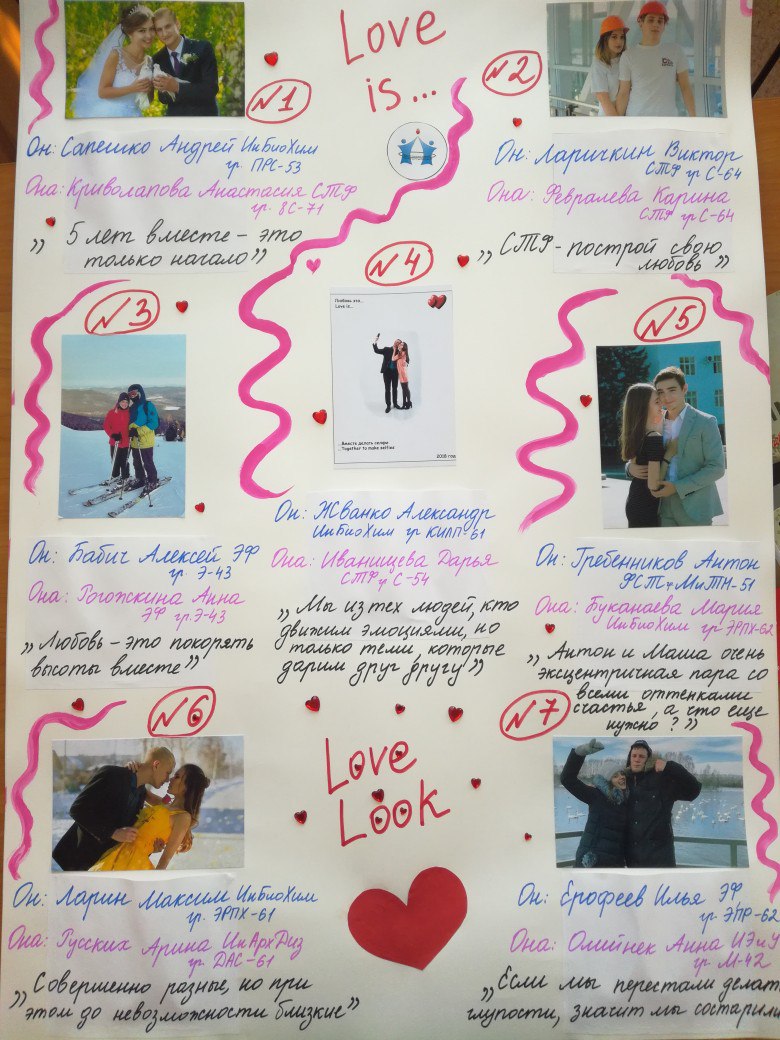 Love
is...
N1
Он: Сапешко Андрей ИнБиоХим
гр. ПРС-53
Она: Криволапова Анастасия СТФ
гр. 8С-71
„ 5 лет вместе – это
только начало”
N2
Он: Ларичкин Виктор
СТФ гр С-64
Она: Февралева Карина
СТФ гр С-64
„СТФ - построй свою
любовь ”
N3
Он: Бабич Алексей ЭФ
гр. Э-43
Она: Рогожкина Анна
ЭФ гр. Э-43
„Любовь – это покорять
высоты вместе”
N4
Любовь это...
Love is...
...Вместе делать селфи
...Together to make selfies
2018 год
Он: Жванко Александр
ИнБиоХим гр КИЛП-61
Она: Иванищева Дарья
СТФ гр С-54
„Мы из тех людей, кто
движим эмоциями, но
только теми, которые
дарим друг другу”
N5
Он: Гребенников Антон
ФСТ гр МиТМ-51
Она: Буканаева Мария
ИнБиоХим гр ЭРПХ-62
„ Антон и Маша очень
эксцентричная пара со
всеми оттенками
счастья, а что еще
нужно?”
N6
Он: Ларин Максим ИнБиоХим
гр. ЭРПХ-61
Она: Русских Арина ИнАрхДиз
гр. ДАС-61
„Совершенно разные, но при
этом до невозможности близкие”
Love
Look
N7
Он: Ерофеев Илья ЭФ
гр. Э/ПР-62
Она: Олийнек Анна ИЭиУ
гр. М-42
„Если мы перестали делат
глупости, значит мы состарили